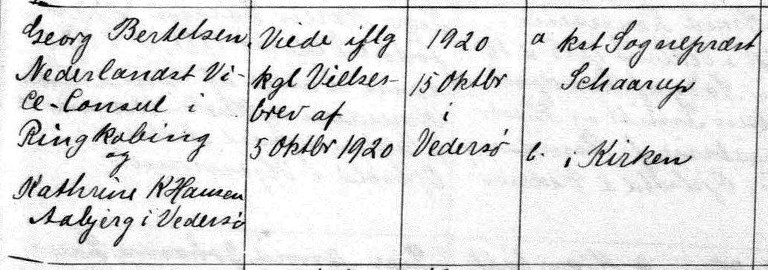 Georg Bertelsen
Nederlandst Vi-
ce-Consul i
Ringkobing
og
Kathrine K Hansen
Aabjerg i Vedersø
Viede iflg
kgl Vielses-
brev af
5 Oktbr 1920
1920
15 Oktbr
i
Vedersø
a kst Sognepræst
Schaarup
b. i Kirken